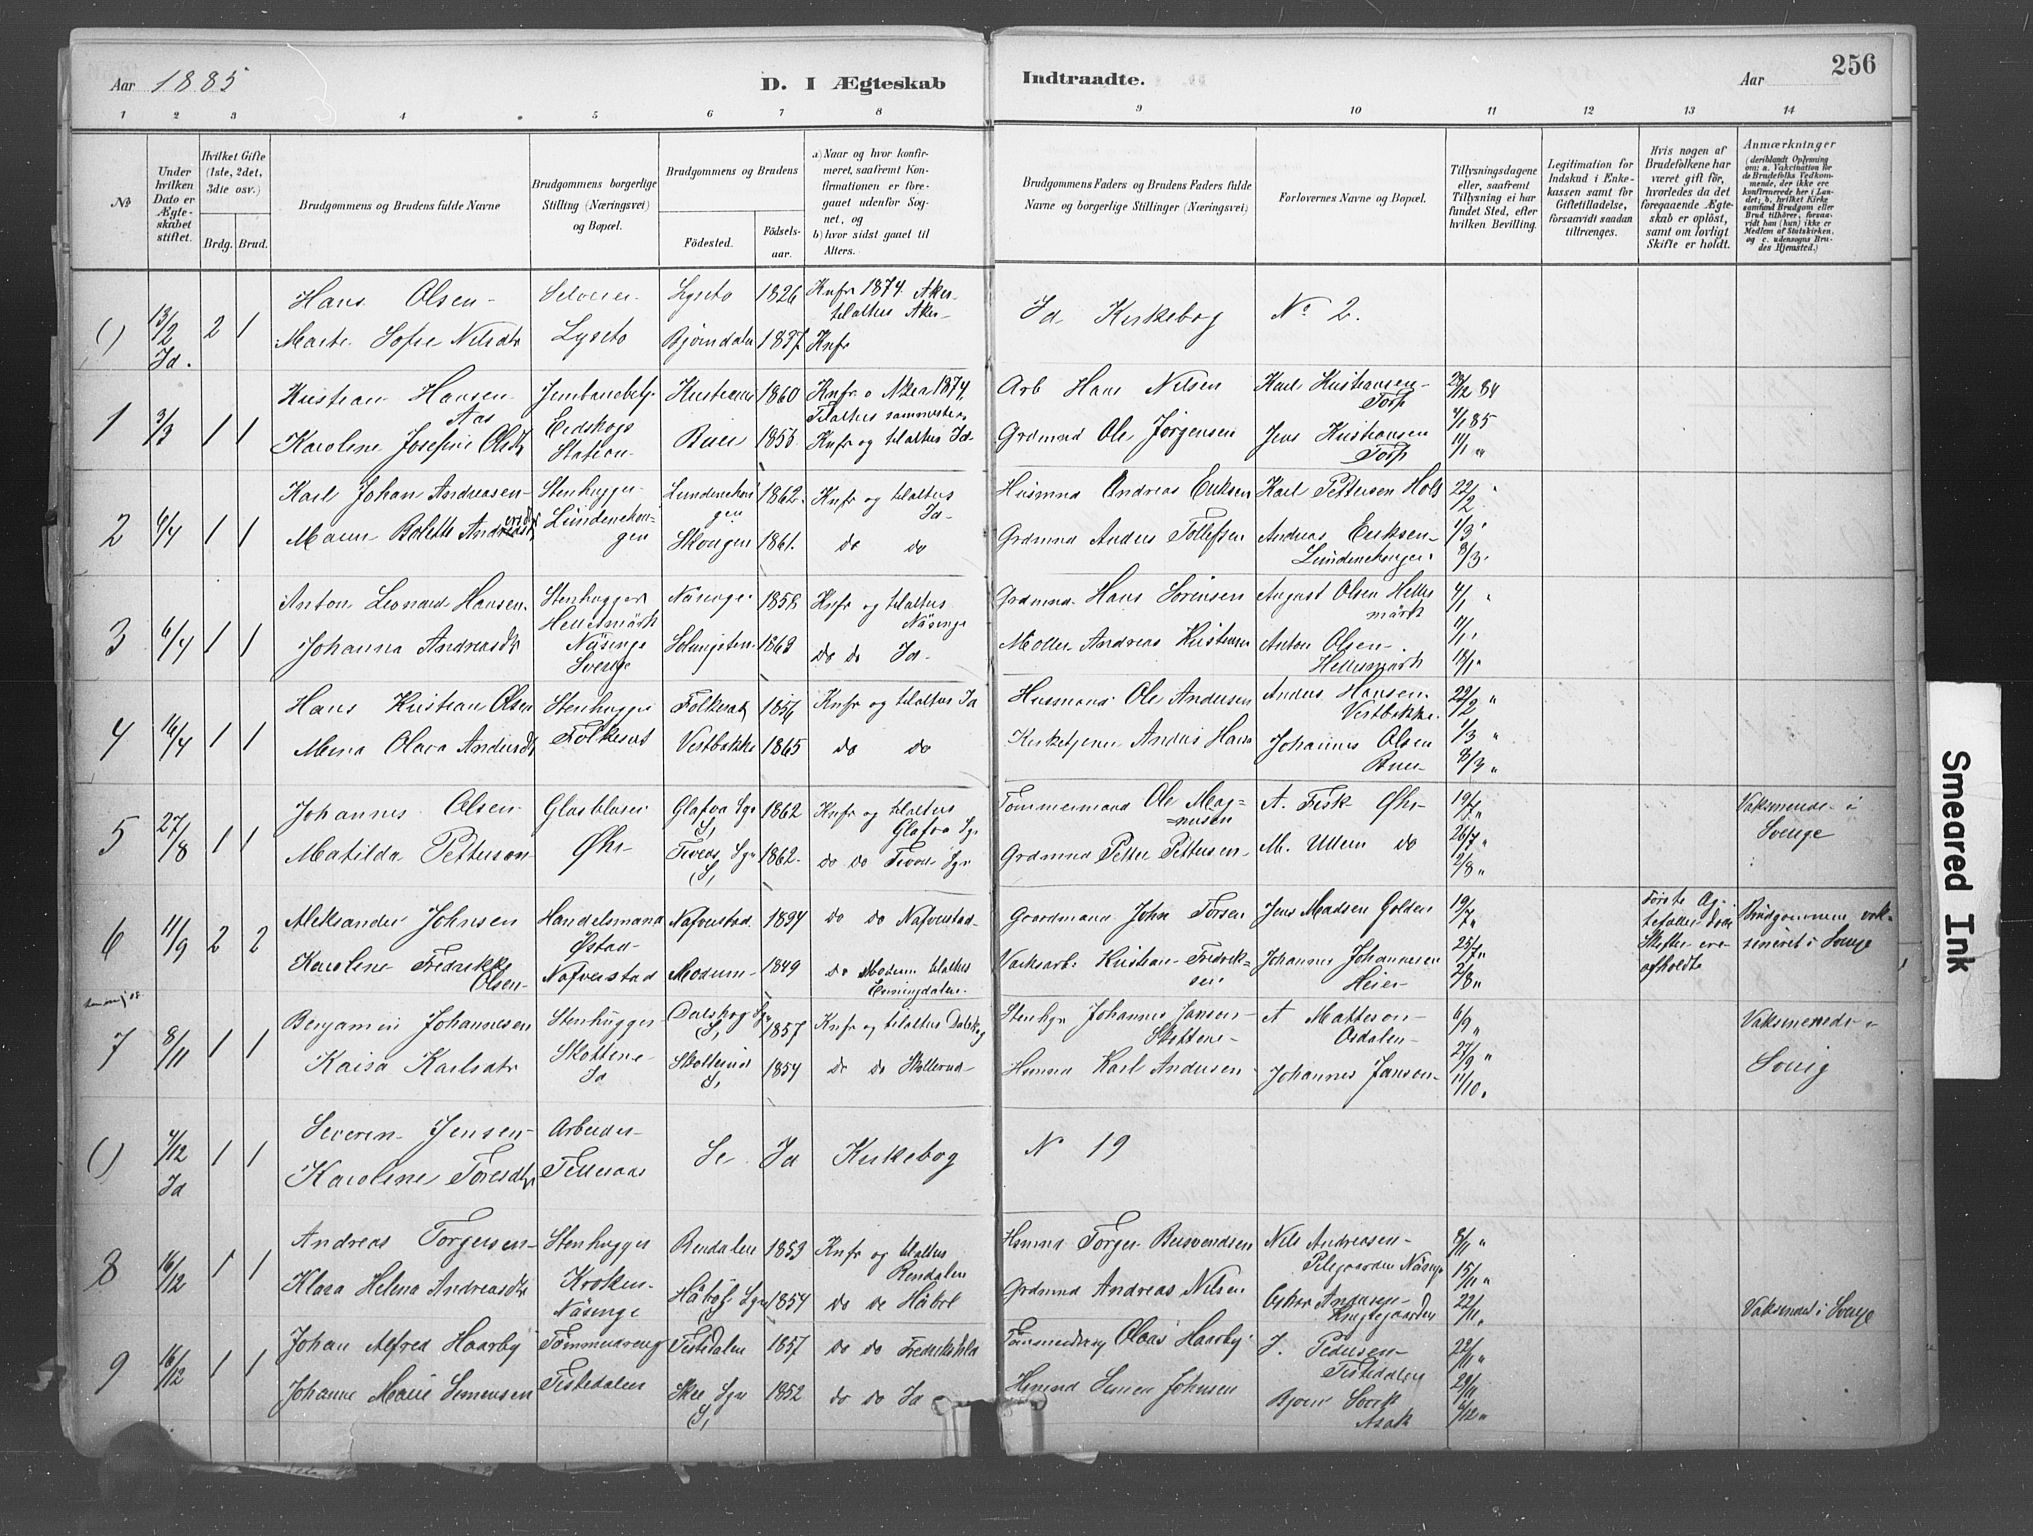 Aar 1885
D. I Ægteskab Indtraadte.
Aar
256
1 2 3 4 5 6 7 8 9 10 11 12 13 14
№
Under hvilken Dato er Ægteskabet stiftet.
Hvilket Gifte (1ste, 2det, 3die osv.)
Brdg. Brud.
Brudgommens og Brudens fulde Navne
Brudgommens borgerlige Stilling (Næringsvei) og Bopæl.
Brudgommens og Brudens
Födested.
Födselsaar.
a) Naar og hvor konfirmeret, saafremt Konfirmationen er foregaaet udenfor Sognet, og
b) hvor sidst gaaet til Alters.
Brudgommens Faders og Brudens Faders fulde Navne og borgerlige Stillinger (Næringsvei)
Forlovernes Navne og Bopæl.
Tillysningsdagene eller, saafremt Tillysning ei har fundet Sted, efter hvilken Bevilling.
Legitimation for Indskud i Enkekassen samt for Giftetilladelse, forsaavidt saadan tiltrænges.
Hvis nogen af Brudefolkene har været gift för, hvorledes da det foregaaende Ægteskab er oplöst, samt om lovligt Skifte er holdt.
Anmærkninger
(deriblandt Oplysning om: a. Vakcination for de Brudefolks Vedkommende, der ikke ere konfirmerede her i Landet; b. hvilket Kirkesamfund Brudgom eller Brud tilhörer, forsaavidt han (hun) ikke er Medlem af Statskirken, og c. udensogns Brudes Hjemsted.)
() 13/2 Id. 2 1
Hans Olsen Lyseto 1826 Knfr 1874 Aker tilalters Aker
Marte Sofie Nilsdtr Lyseto Bjørndalen 1837 Knfr
Id Kirkebog No 2.
1 3/3 1 1
Kristian Hansen Aas Eidskogs Station 1860
Arb Hans Nilsen Karl Kristiansen Torp 28/12 84
Karoline Josefine Olsdtr Buer 1855 Knfr og tilalters Id
Grdmnd Ole Jørgensen Jens Kristiansen Torp 4/1 85 11/1 "
2 6/4 1 1
Karl Johan Andreasen Stenhugger 1862 Knfr og tilalters Id
Husmnd Andreas Eriksen Karl Pettersen Hols 22/2
Bolette Skougen 1861 do do
Grdmnd Anders Tollefsen Andreas Eriksen 1/3 8/3
3 6/4 1 1
Anton Leonard Hansen Stenhugger Hellesmårk Näsinge Sverige Näsinge 1858 Knfr og tilalters Näsinge
Grdmnd Hans Sörensen August Olsen Hellesmårk 4/1
Johanna Andreasdtr 1863 do do Id
Möller Andreas Kristiansen Anton Olsen Hellesmårk 11/1 18/1
4 16/4 1 1
Hans Kristian Olsen Stenhugger 1856 Knfr og tilalters Id
Husmand Ole Andersen Anders Hansen Vestbakke 22/2 "
Mina Olava Andersdtr Vestbakke 1865 do do
Kirketjener Anders Hansen Johannes Olsen Buer 1/3 " 8/3 "
5 27/8 1 1
Johannes Olsen Glasblaser Øhr Glafva Sgn S, 1862 Knfr og tilalters Glafva Sgn
Tømmermand Ole Magnusen A. Fisk Øhr 19/7 "
Vaksinerede i Sverige
Matilda Petterson Tiveds Sgn S, 1862 do do Tiveds Sgn
Grdmnd Petter Pettersen M. Ullern do 26/7 " 2/8 "
6 11/9 2 2
Aleksander Johnsen Handelsmand Østad Nafverstad Nafverstad do do Nafverstad
Gaardmand John Torsen Jens Madsen Golden 19/7 "
Første Ægtefæller døde Skifter ere afholdte
Brudgommen vaksineret i Sverige
Karoline Fredrikke Olsen Modum 1849 do Modum tilalters Enningdalen
Kristian Fredriksen Johannes Johannesen Heier 25/7 " 2/8 "
7 8/11 1 1
Benjamin Johannesen Stenhugger Skottene Id Dalskog Sgn S, 1857 Knfr og tilalters Dalskog
Stenhgr Johannes Jansen Skottene A Matteson Asdalen 6/9 "
Vaksinerede i Sverig
Kaisa Karlsdtr Skållerud S, 1854 do do Skållerud
Husmnd Karl Andersen Johannes Jansen 27/9 " 11/10 "
() 4/12 Id 1 1
Severin Jensen Arbeider
Karoline Toresdtr
Se Id Kirkebog N 19
8 16/12 1 1
Andreas Torgersen Stenhugger Kroken Näsinge Rendalen 1853 Knfr og tilalters Rendalen
Husmnd Torger Nils Andreasen Pilegaarden Näsinge 8/11 "
Klara Helena Andreasdtr Håbol Sgn S, 1854 do do Håbol
Grdmnd Andreas Nilsen Oskar 15/11 " 22/11 "
Vaksineret i Sverige
9 16/12 1 1
Johan Alfred Haarby Tistedalen Tistedalen 1857 do do Frederikshld
Olaus Haarby J. Pedersen Tistedalen 22/11 "
Johanne Marie Simensen Skee Sgn S, 1852 do do Id
Husmnd Simen Johnsen Asak 29/11 6/12 "
Smeared Ink